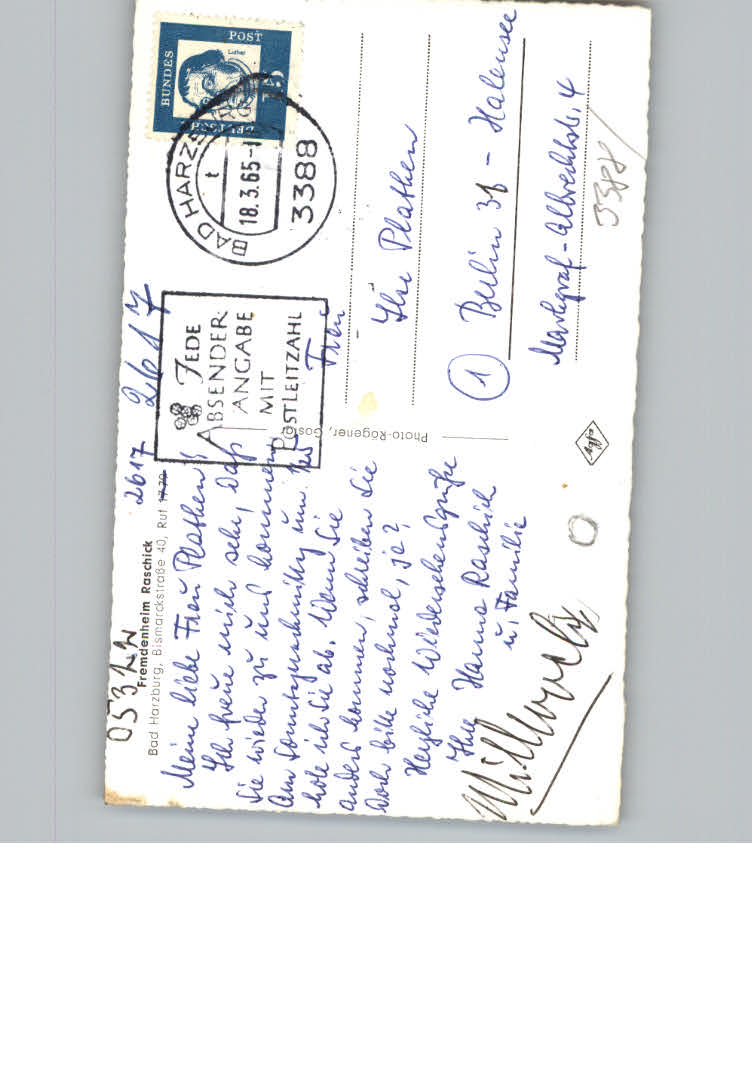 05322
Fremdenheim Raschick
2617
2617
Bad Harzburg, Bismarckstraße 40, Ruf 17 79
Meine liebe Frau Plathen!
Ich freue mich sehr, daß
Sie wieder zu uns kommen
Am Sonntagnachmittag um
hole ich Sie ab. Wenn Sie
anders kommen, schreiben Sie
doch bitte nochmal, ja?
Herzliche Wiedersehensgrüße
Ihre Hanna Raschick
u. Familie
Mittwoch
Photo-Rögener, Goslar
Agfa
JEDE
ABSENDER-
ANGABE
MIT
POSTLEITZAHL
DEUTSCHE
BUNDES
POST
Luther
15
BAD HARZBURG
18.3.65-1
3388
t
Frau
Plathen
1 Berlin 31 - Halensee
Markgraf-Albrechtstr. 4
3388